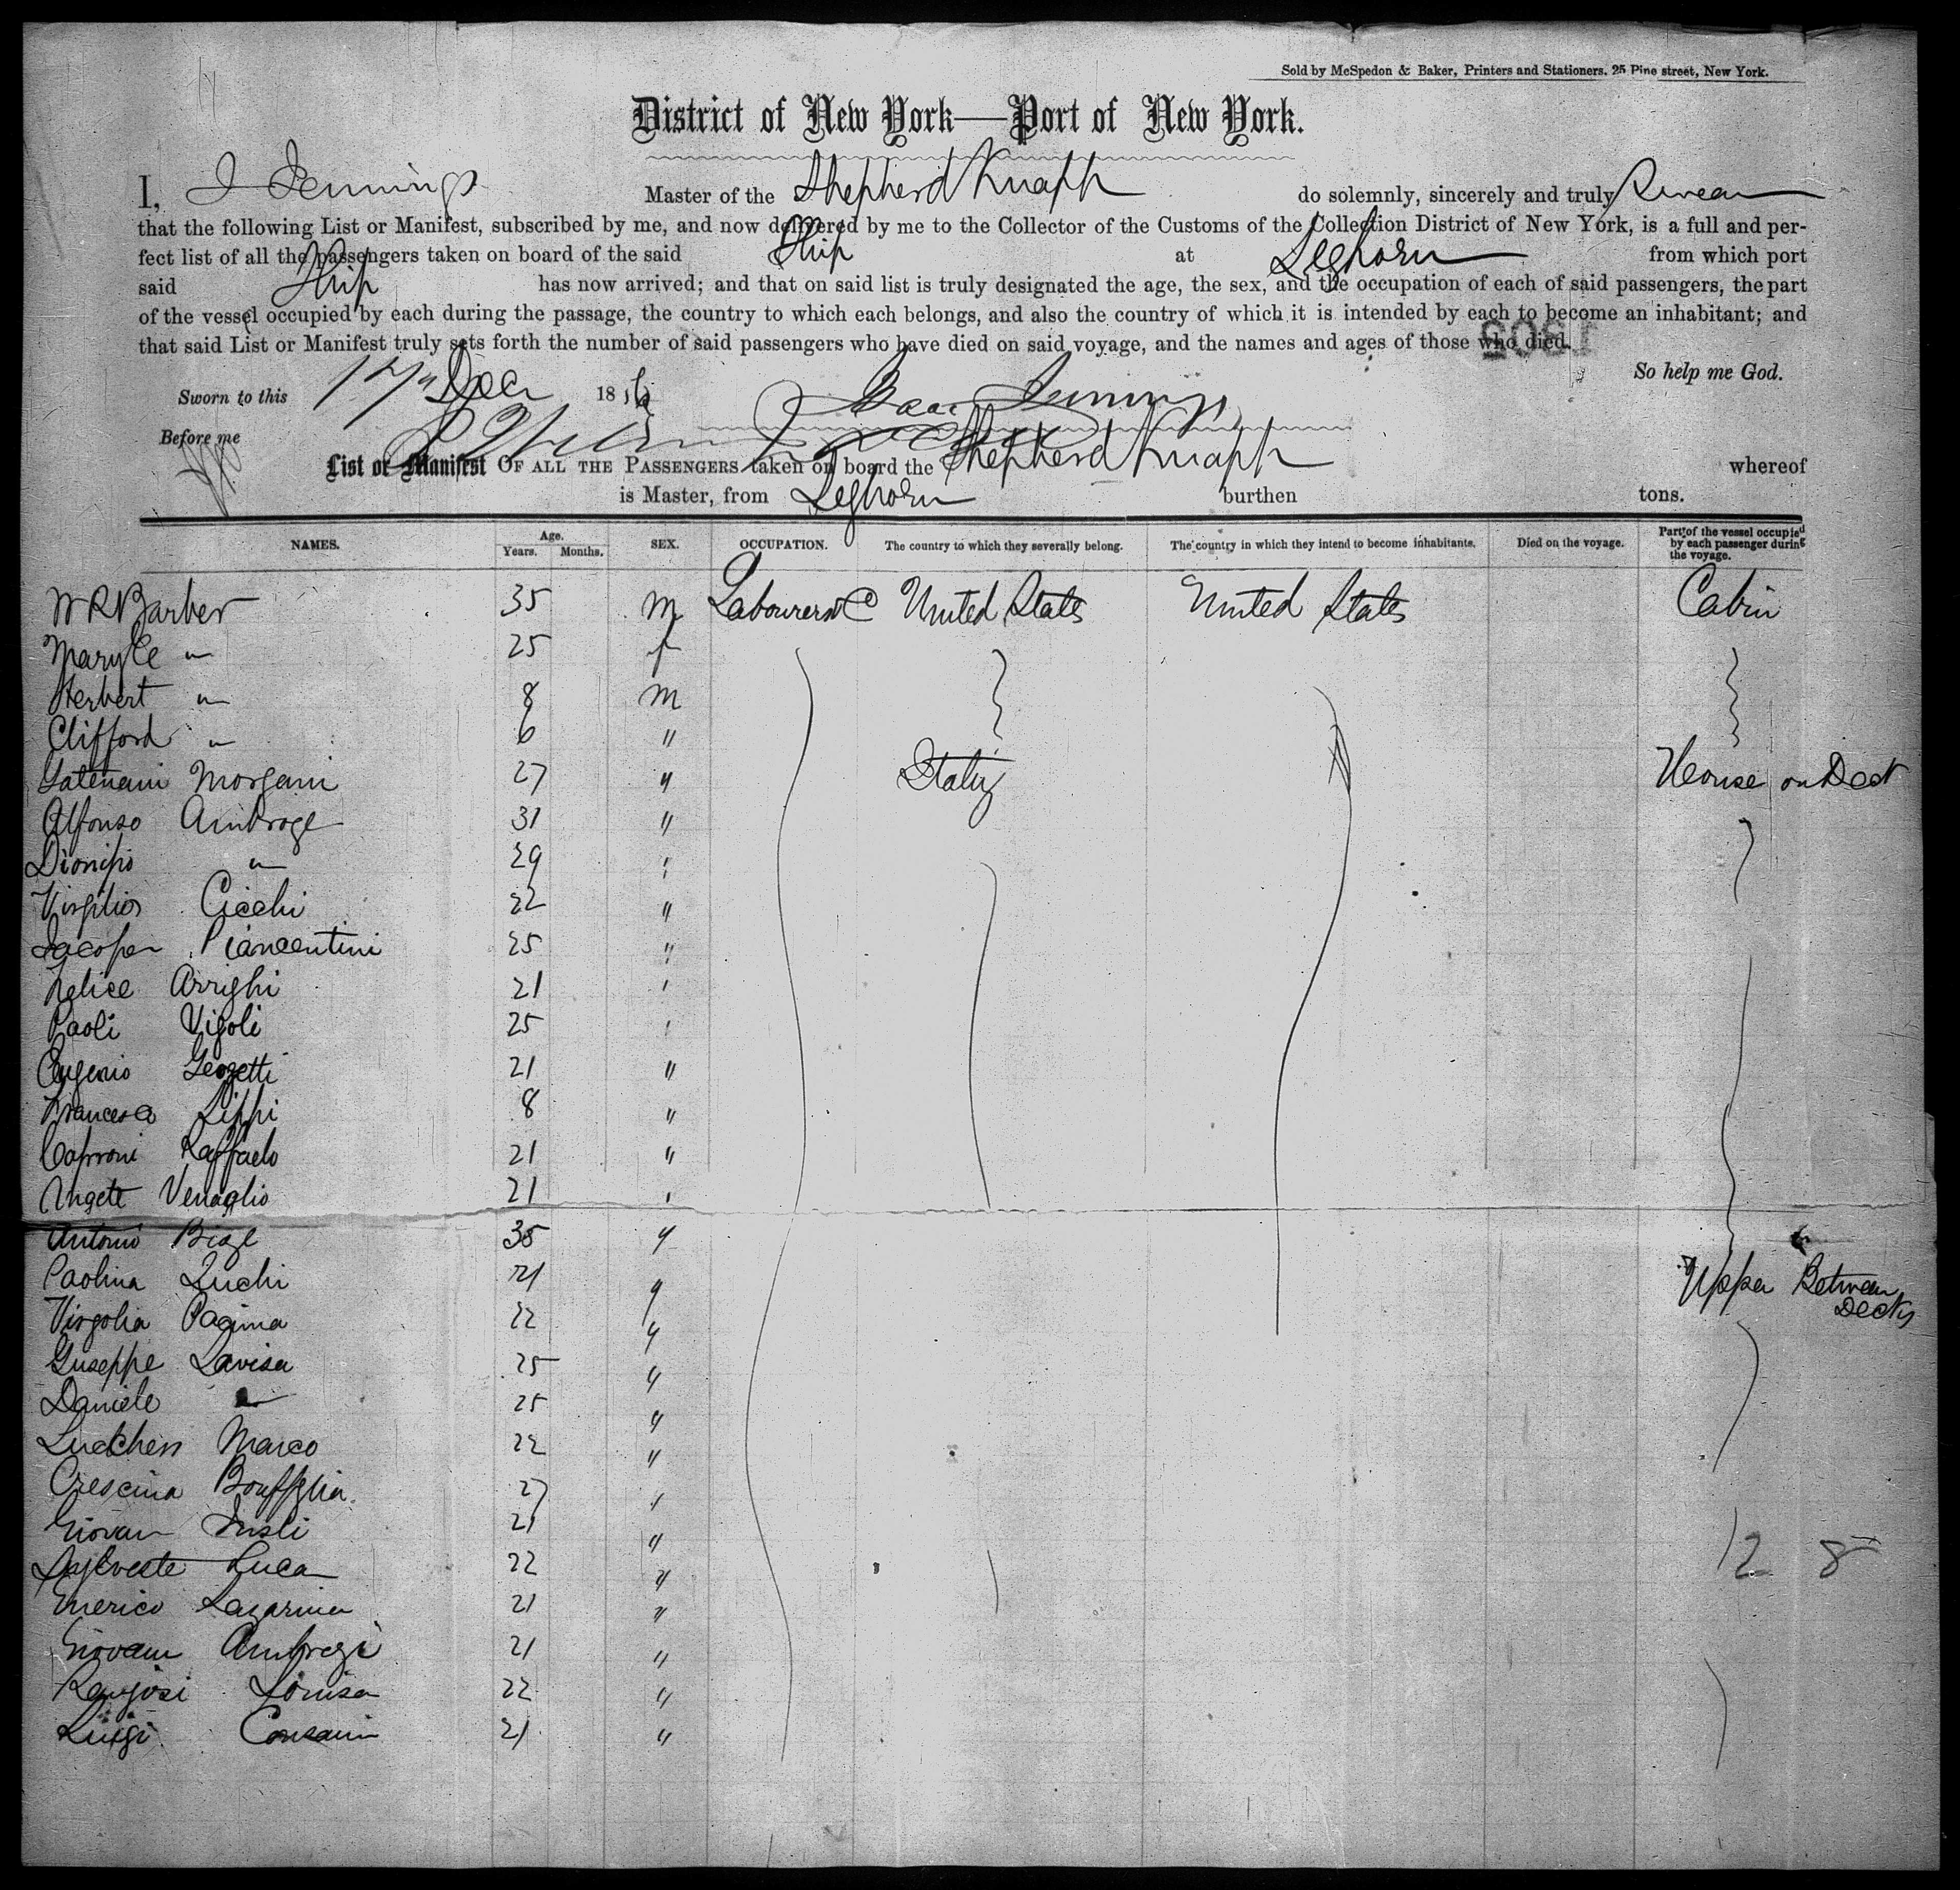 Sold by McSpedon & Baker, Printers and Stationers, 25 Pine street, New York.
District of New York—Port of New York.
I, I Jennings Master of the Shepherd Knapp do solemnly, sincerely and truly Swear
that the following List or Manifest, subscribed by me, and now delivered by me to the Collector of the Customs of the Collection District of New York, is a full and per-
fect list of all the passengers taken on board of the said Ship at Leghorn from which port
said Ship has now arrived; and that on said list is truly designated the age, the sex, and the occupation of each of said passengers, the part
of the vessel occupied by each during the passage, the country to which each belongs, and also the country of which it is intended by each to become an inhabitant; and
that said List or Manifest truly sets forth the number of said passengers who have died on said voyage, and the names and ages of those who died.
So help me God.
Sworn to this 17 Dec 18 Isaac Jennings
Before me
List or Manifest OF ALL THE PASSENGERS taken on board the Shepherd Knapp whereof
is Master, from Leghorn burthen tons.
NAMES. Age. Years. Months. SEX. OCCUPATION. The country to which they severally belong. The country in which they intend to become inhabitants. Died on the voyage. Part of the vessel occupied by each passenger during the voyage.
W R Barber 35 M Labourers &c United States United States Cabin
Mary E " 25 f
Herbert " 8 M
Clifford " 6 "
Morgani 27 " Italy House on Deck
Alfonso Ambroge 31 "
Dionisio " 29 "
Virgilio Cicchi 22 "
Jacopo Piancentini 25 "
Felice Arrighi 21 "
Paoli Vigoli 25 "
Eugenio Georgetti 21 "
Francesco Lippi 8 "
Caproni Raffaelo 21 "
Angele Venaglio 21 "
Antonio Biagi 35 "
Paolina Luchi 21 " Upper Between Decks
Virgolia Pagima 22 "
Guseppe Lavisa 25 "
Daniele " 25 "
Marco 22 "
Crescina 27 "
Giovan 21 "
Luca 22 " 12 8
Enerico Lazarina 21 "
Giovani Ambrogi 21 "
Louisa 22 "
Luigi 21 "